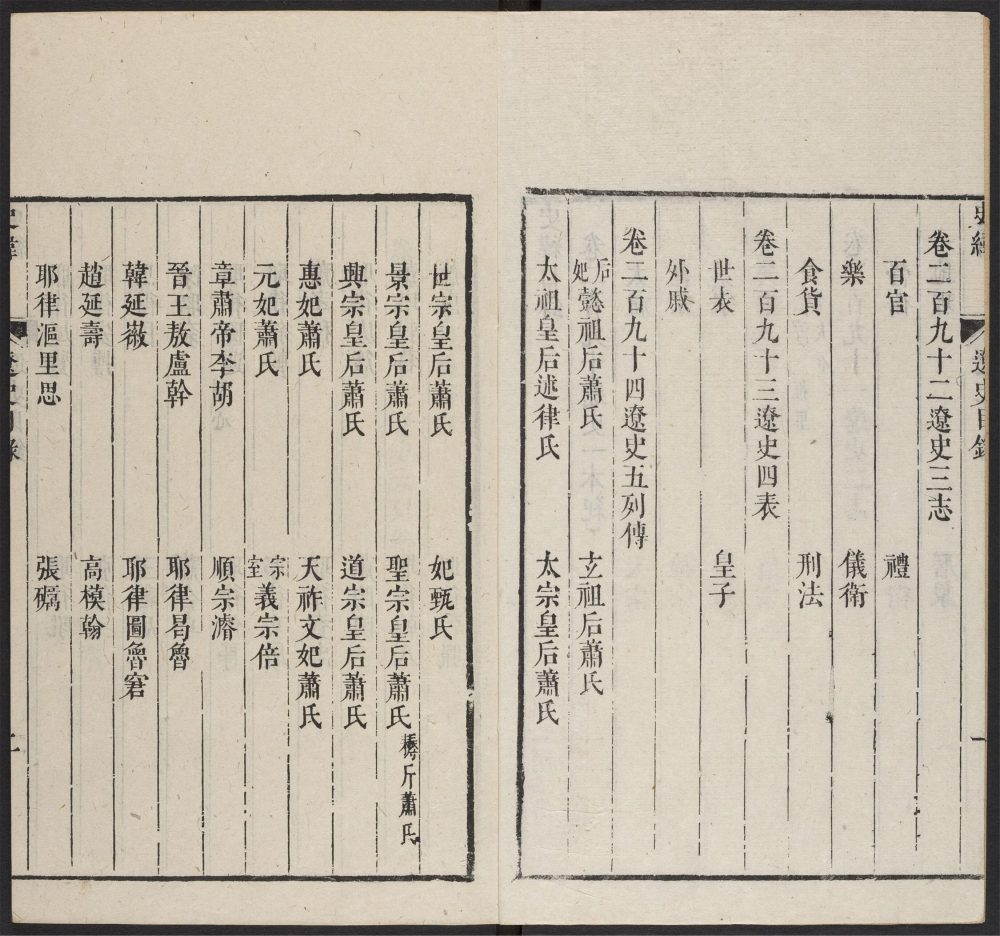 史緯
遼史目錄
一
卷二百九十二遼史三志
百官
禮
樂
儀衛
食貨
刑法
卷二百九十三遼史四表
世表
皇子
外戚
卷二百九十四遼史五列傳
后妃懿祖后蕭氏
玄祖后蕭氏
太祖皇后述律氏
太宗皇后蕭氏
世宗皇后蕭氏
妃甄氏
景宗皇后蕭氏
聖宗皇后蕭氏
耨斤蕭氏
興宗皇后蕭氏
道宗皇后蕭氏
惠妃蕭氏
天祚文妃蕭氏
元妃蕭氏
宗室義宗倍
章肅帝李胡
順宗濬
晉王敖盧幹
耶律曷魯
韓延徽
耶律圖魯窘
趙延壽
高模翰
耶律漚里思
張礪